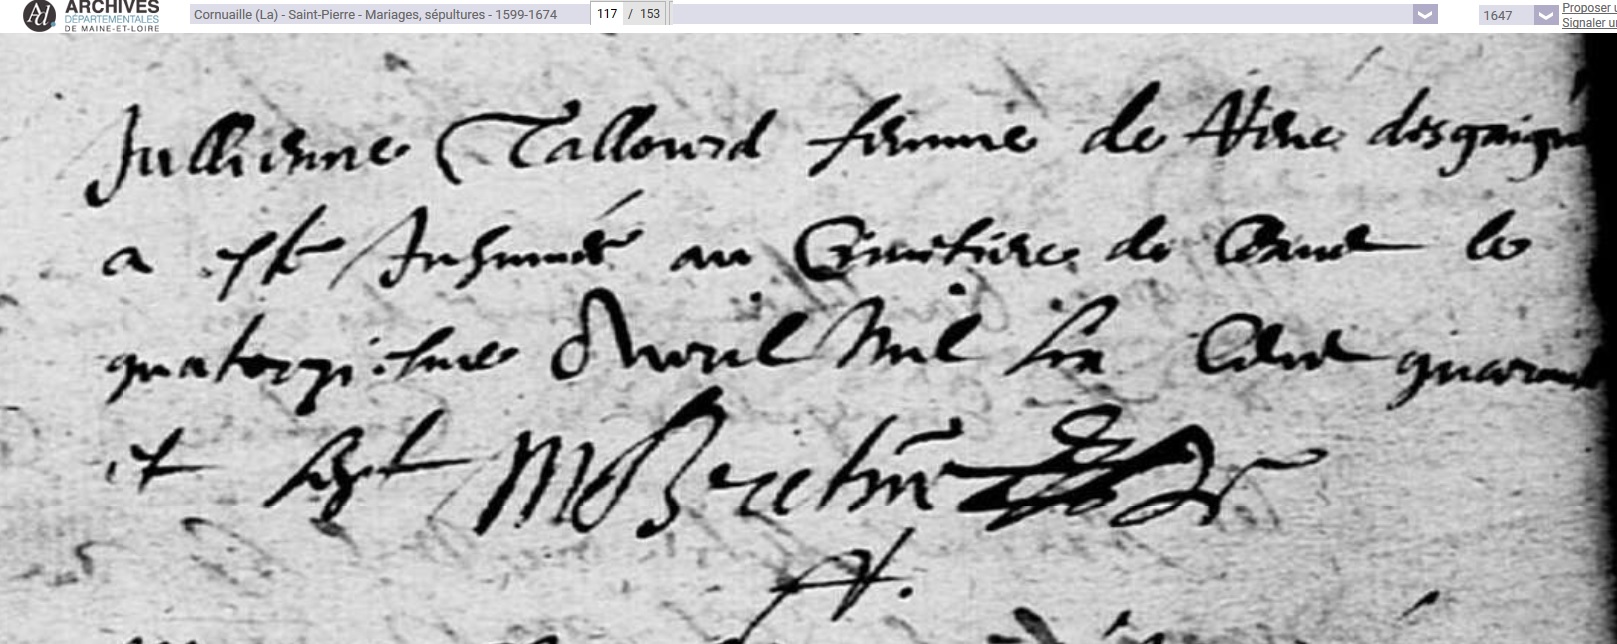 ARCHIVES
DÉPARTEMENTALES
DE MAINE-ET-LOIRE
Cornuaille (La) - Saint-Pierre - Mariages, sépultures - 1599-1674
117 / 153
1647
Proposer u
Signaler un
Jullienne Tallourd femme de René desgaigné
a esté Inhumée au Cimitiere de Candé le
quatorziesme d'Avril Mil six Cent quarante
et sept